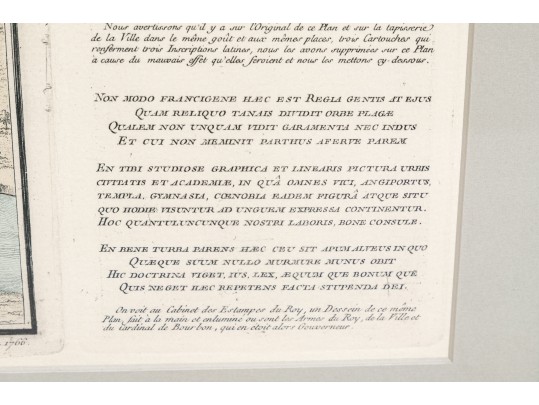 Nous avertissons qu'il y a sur l'Original de ce Plan et sur la tapisserie
de la Ville dans le même goût et aux mêmes places, trois Cartouches qui
renferment trois Inscriptions latines, nous les avons supprimées sur ce Plan
à cause du mauvais effet qu'elles feroient et nous les mettons cy-dessous.
NON MODO FRANCIGENE HÆC EST REGIA GENTIS AT EJUS
QUAM RELIQUO TANAIS DIVIDIT ORBE PLAGÆ
QUALEM NON UNQUAM VIDIT GARAMENTA NEC INDUS
ET CUI NON MEMINIT PARTHUS AFERVE PAREM
EN TIBI STUDIOSE GRAPHICA ET LINEARIS PICTURA URBIS
CIVITATIS ET ACADEMIÆ, IN QUÂ OMNES VICI, ANGIPORTUS,
TEMPLA, GYMNASIA, CŒNOBIA EADEM FIGURÂ ATQUE SITU
QUO HODIE VISUNTUR AD UNGUEM EXPRESSA CONTINENTUR.
HOC QUANTULUNCUNQUE NOSTRI LABORIS, BONE CONSULE.
EN BENE TURBA PARENS HÆC CEU SIT APUM ALVEUS IN QUO
QUÆQUE SUUM NULLO MURMURE MUNUS OBIT
HIC DOCTRINA VIGET, IUS, LEX, ÆQUUM QUE BONUM QUE
QUIS NEGET HÆC REPETENS FACTA STUPENDA DEI.
On voit au Cabinet des Estampes du Roy, un Dessein de ce même
Plan, fait à la main et enluminé ou sont les Armes du Roy, de la Ville et
du Cardinal de Bourbon, qui en étoit alors Gouverneur.
1766.